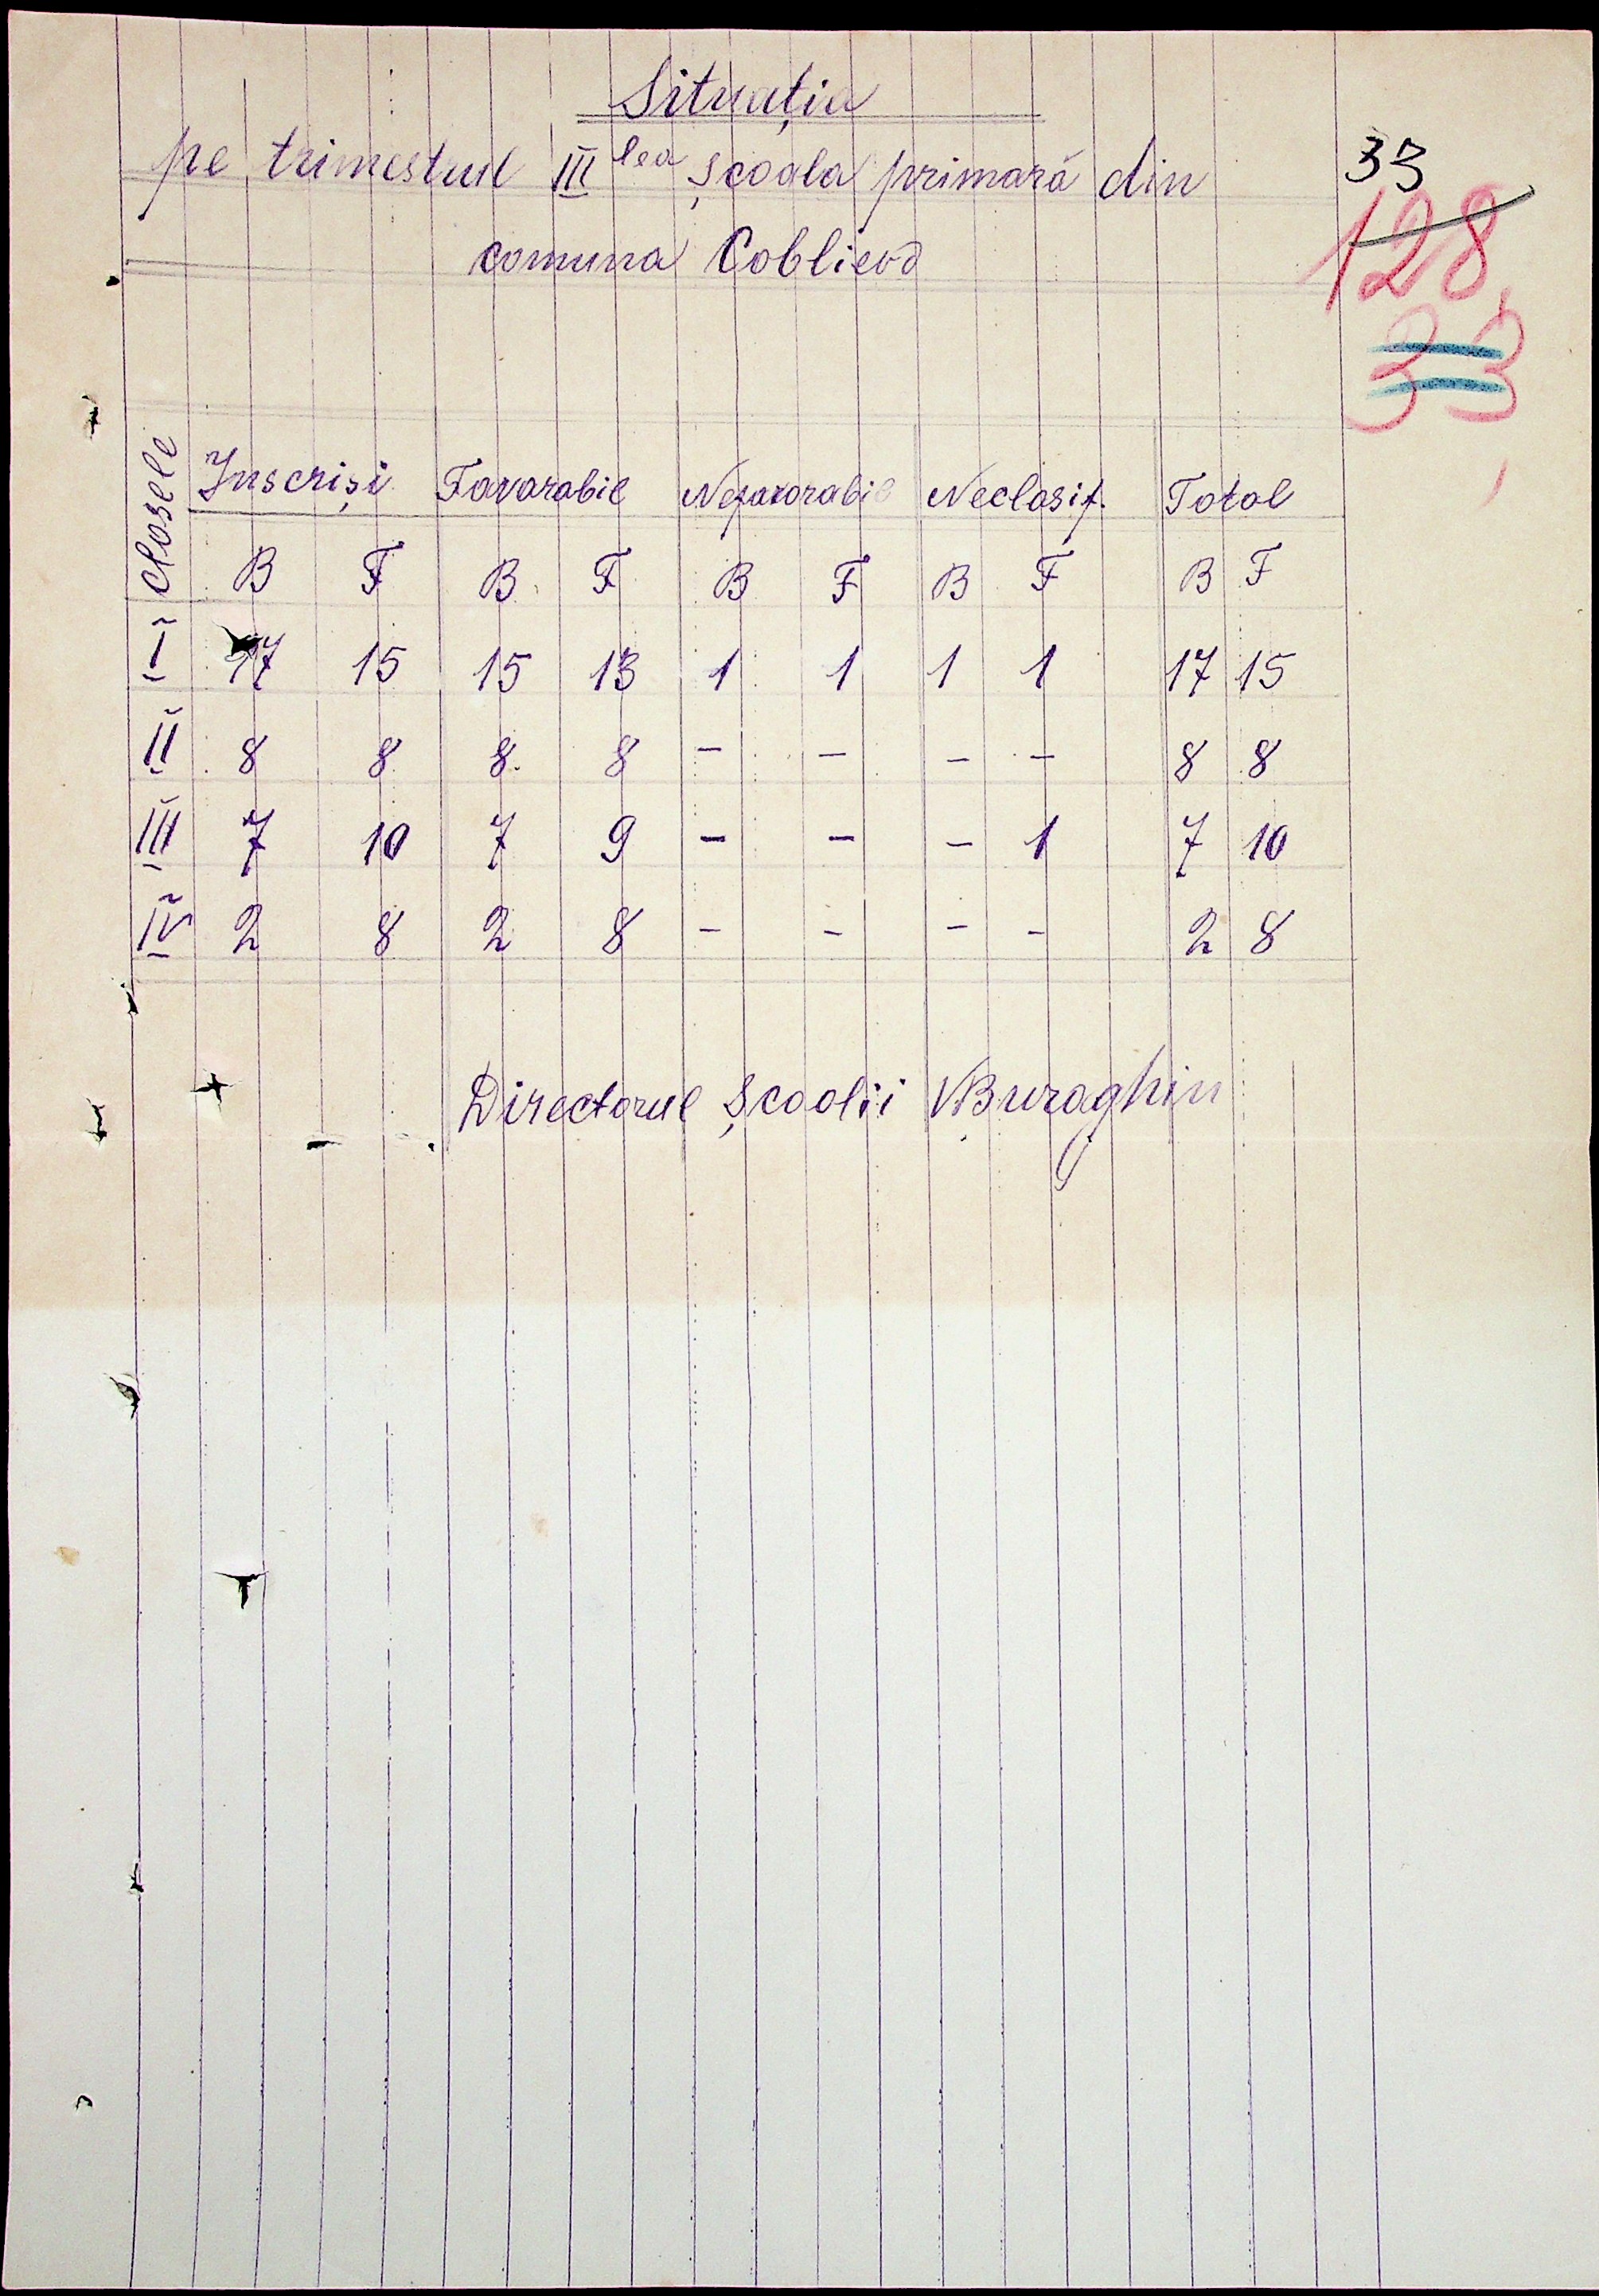 Situația
pe trimestrul III lea școala primară din
comuna Coblievo
33
128
33
Closele Inscriși Favarabil Nefavorabil Neclasif. Total
B F B F B F B F B F
I 17 15 15 13 1 1 1 1 17 15
II 8 8 8 8 - - - - 8 8
III 7 10 7 9 - - - 1 7 10
IV 2 8 2 8 - - - - 2 8
Directorul Școolii VBuraghin